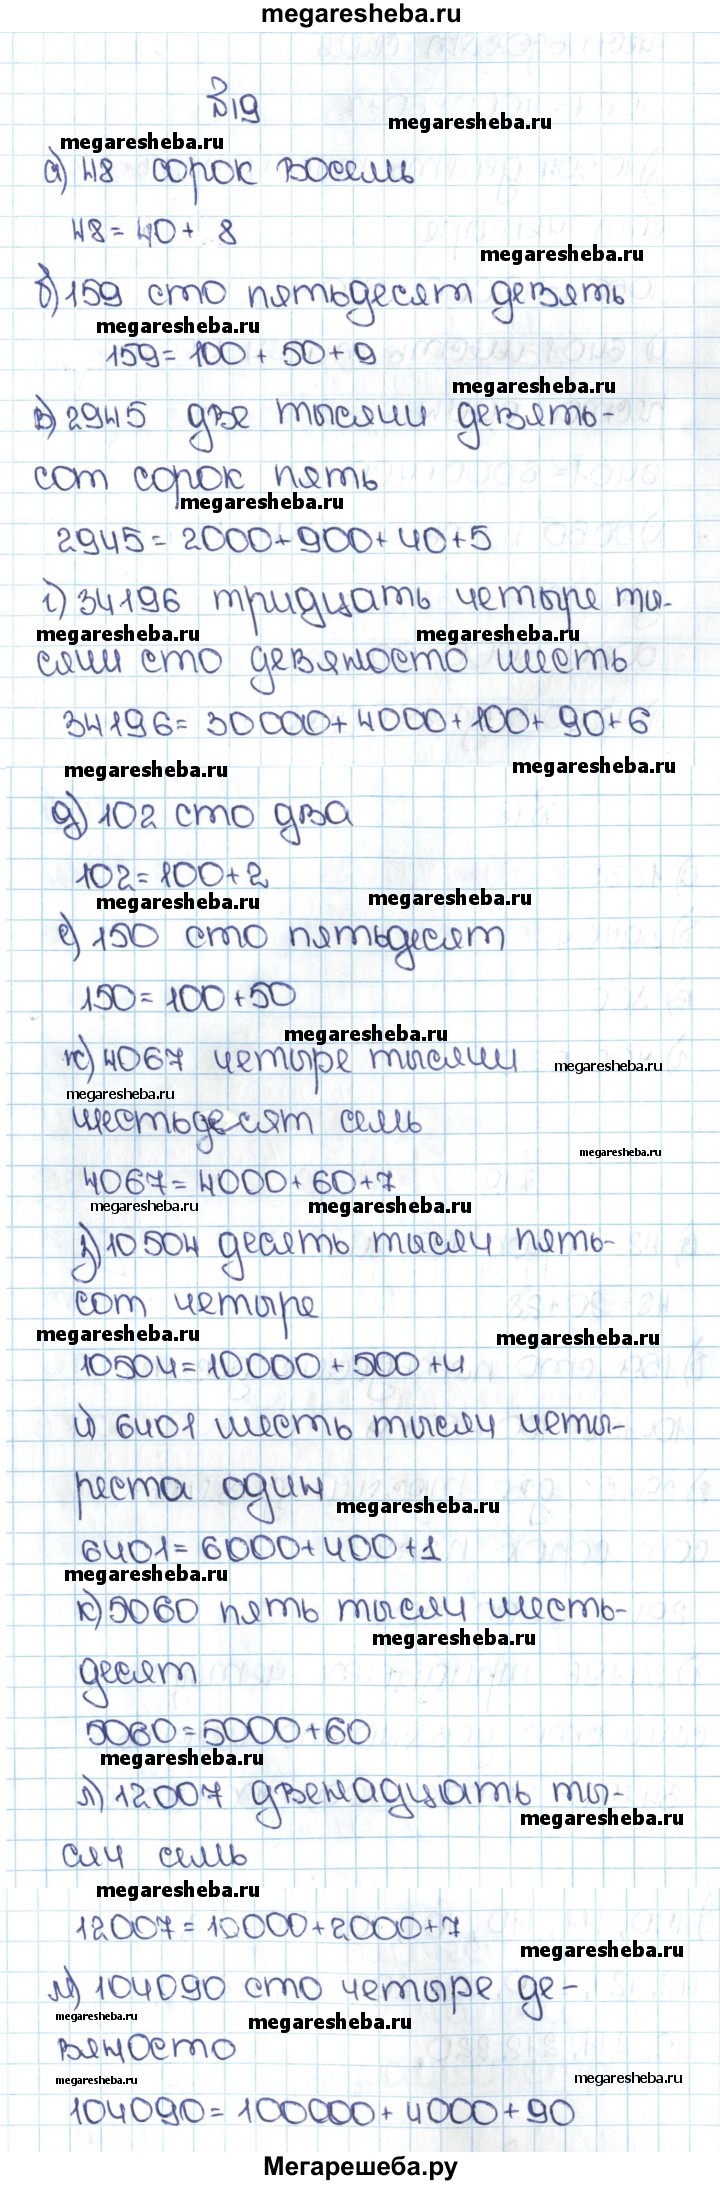 megaresheba.ru
№19
megaresheba.ru
megaresheba.ru
а) 48 сорок восемь
48 = 40 + 8
megaresheba.ru
б) 159 сто пятьдесят девять
megaresheba.ru
159 = 100 + 50 + 9
megaresheba.ru
в) 2945 две тысячи девять-
сот сорок пять
megaresheba.ru
2945 = 2000 + 900 + 40 + 5
г) 34196 тридцать четыре ты-
megaresheba.ru megaresheba.ru
сячи сто девяносто шесть
34196 = 30000 + 4000 + 100 + 90 + 6
megaresheba.ru megaresheba.ru
д) 102 сто два
102 = 100 + 2
megaresheba.ru megaresheba.ru
е) 150 сто пятьдесят
150 = 100 + 50
megaresheba.ru
ж) 4067 четыре тысячи
megaresheba.ru
megaresheba.ru
шестьдесят семь
megaresheba.ru
4067 = 4000 + 60 + 7
megaresheba.ru megaresheba.ru
з) 10504 десять тысяч пять-
сот четыре
megaresheba.ru megaresheba.ru
10504 = 10000 + 500 + 4
и) 6401 шесть тысяч четы-
реста один
megaresheba.ru
6401 = 6000 + 400 + 1
megaresheba.ru
к) 5060 пять тысяч шесть-
megaresheba.ru
десят
5060 = 5000 + 60
megaresheba.ru
л) 12007 двенадцать ты-
megaresheba.ru
сяч семь
megaresheba.ru
12007 = 10000 + 2000 + 7
megaresheba.ru
м) 104090 сто четыре де-
megaresheba.ru megaresheba.ru
вяносто
megaresheba.ru megaresheba.ru
104090 = 100000 + 4000 + 90
Мегарешеба.ру